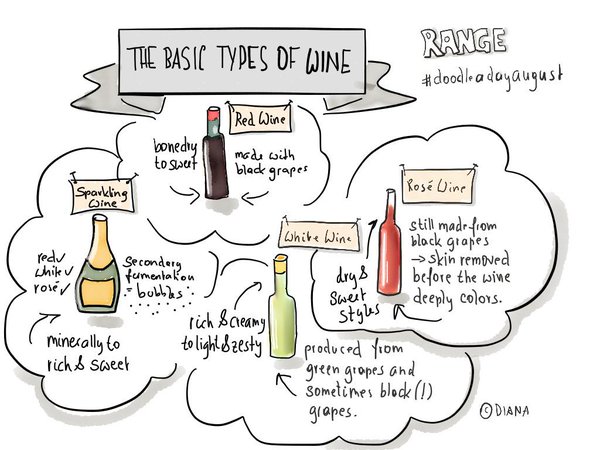 THE BASIC TYPES OF WINE
RANGE
#doodleadayaugust
Red Wine
bonedry
to sweet
made with
black grapes
Sparkling
Wine
red✓
white✓
rosé✓
secondary
fermentation
= bubbles
minerally to
rich & sweet
White Wine
rich & creamy
to light & zesty
produced from
green grapes and
sometimes black(!)
grapes.
Rosé Wine
dry &
sweet
styles
still made from
black grapes
→ skin removed
before the wine
deeply colors.
© DIANA